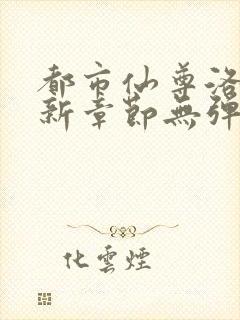 都市仙尊洛
新章節無彈
化雲煙